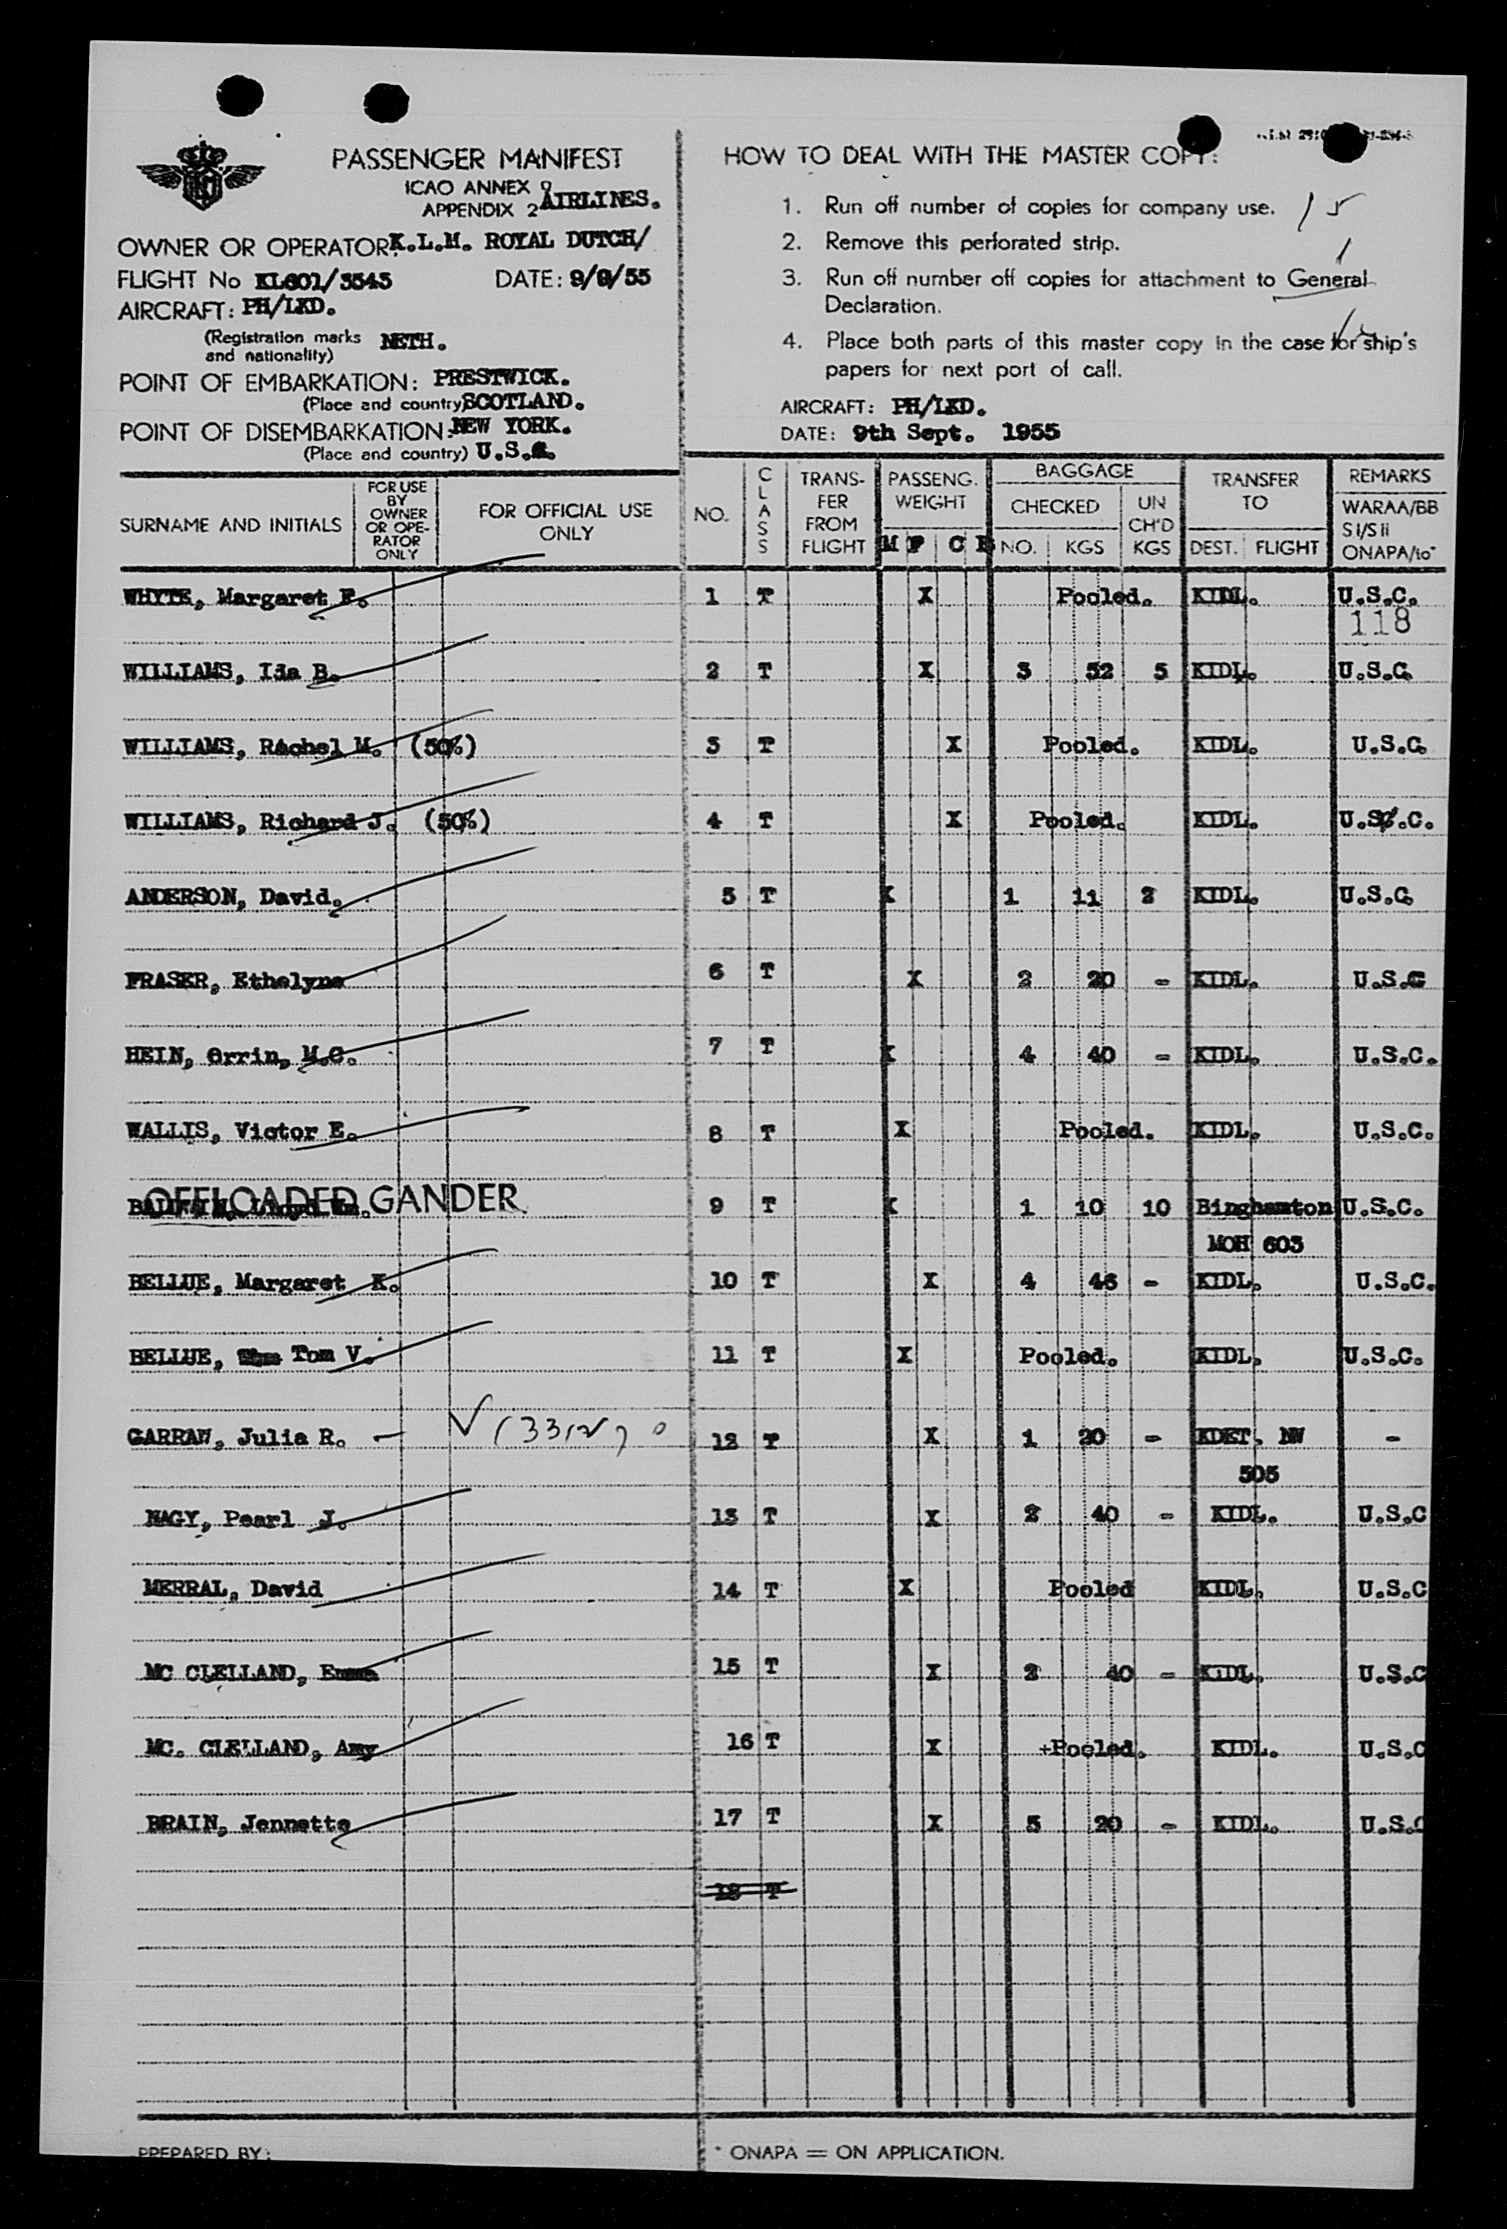 PASSENGER MANIFEST
ICAO ANNEX 9
APPENDIX 2 AIRLINES.
OWNER OR OPERATOR: K.L.M. ROYAL DUTCH/
FLIGHT No KL601/3545 DATE: 9/9/55
AIRCRAFT: PH/LKD.
(Registration marks NETH.
and nationality)
POINT OF EMBARKATION: PRESTWICK.
(Place and country) SCOTLAND.
POINT OF DISEMBARKATION: NEW YORK.
(Place and country) U.S.A.
HOW TO DEAL WITH THE MASTER COPY:
1. Run off number of copies for company use. 15
2. Remove this perforated strip.
3. Run off number off copies for attachment to General 1
Declaration.
4. Place both parts of this master copy in the case for ship's
papers for next port of call.
AIRCRAFT: PH/LKD.
DATE: 9th Sept. 1955
SURNAME AND INITIALS
FOR USE
BY
OWNER
OR OPE-
RATOR
ONLY
FOR OFFICIAL USE
ONLY
NO.
CLASS
TRANS-
FER
FROM
FLIGHT
PASSENG.
WEIGHT
M F C
BAGGAGE
CHECKED
NO. KGS
UN
CH'D
KGS
TRANSFER
TO
DEST. FLIGHT
REMARKS
WARAA/BB
SI/SII
ONAPA/to*
WHYTE, Margaret F. 1 T X Pooled. KIDL. U.S.C.
118
WILLIAMS, Ida B. 2 T X 3 52 5 KIDL. U.S.C.
WILLIAMS, Rachel M. (50%) 3 T X Pooled. KIDL. U.S.C.
WILLIAMS, Richard J. (50%) 4 T X Pooled. KIDL. U.S.C.
ANDERSON, David. 5 T X 1 11 2 KIDL. U.S.C.
FRASER, Ethelyne 6 T X 2 20 - KIDL. U.S.C
HEIN, Orrin, M.C. 7 T X 4 40 - KIDL. U.S.C.
WALLIS, Victor E. 8 T X Pooled. KIDL. U.S.C.
OFFLOADED GANDER. 9 T X 1 10 10 Binghamton U.S.C.
MOH 603
BELLUE, Margaret K. 10 T X 4 46 - KIDL. U.S.C.
BELLUE, Tom V. 11 T X Pooled. KIDL. U.S.C.
GARRAW, Julia R. - 12 T X 1 20 - KDET. NW -
505
NAGY, Pearl J. 13 T X 2 40 - KIDL. U.S.C
MERRAL, David 14 T X Pooled KIDL. U.S.C
MC CLELLAND, Emma 15 T X 2 40 - KIDL. U.S.C
MC. CLELLAND, Amy 16 T X +Pooled. KIDL. U.S.C
BRAIN, Jennette 17 T X 3 20 - KIDL. U.S.C
18 T
PREPARED BY:
* ONAPA = ON APPLICATION.